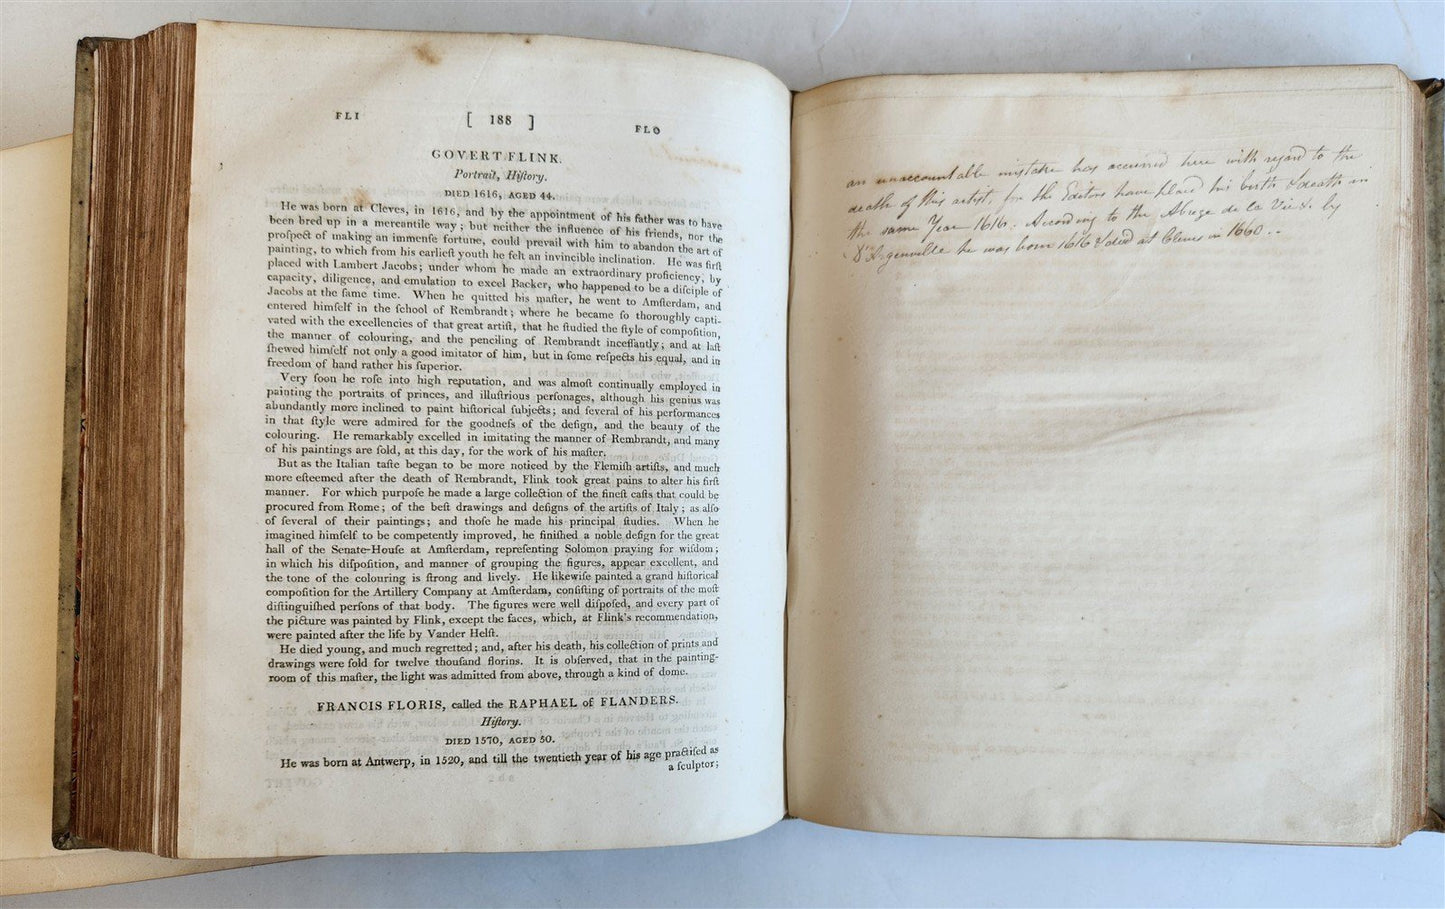 FLI [ 188 ] FLO
GOVERT FLINK.
Portrait, Hiſtory.
DIED 1616, AGED 44.
He was born at Cleves, in 1616, and by the appointment of his father was to have
been bred up in a mercantile way; but neither the influence of his friends, nor the
proſpect of making an immenſe fortune, could prevail with him to abandon the art of
painting, to which from his earlieſt youth he felt an invincible inclination. He was firſt
placed with Lambert Jacobs; under whom he made an extraordinary proficiency, by
capacity, diligence, and emulation to excel Backer, who happened to be a diſciple of
Jacobs at the ſame time. When he quitted his maſter, he went to Amſterdam, and
entered himſelf in the ſchool of Rembrandt; where he became ſo thoroughly capti-
vated with the excellencies of that great artiſt, that he ſtudied the ſtyle of compoſition,
the manner of colouring, and the penciling of Rembrandt inceſſantly; and at laſt
ſhewed himſelf not only a good imitator of him, but in ſome reſpects his equal, and in
freedom of hand rather his ſuperior.
Very ſoon he roſe into high reputation, and was almoſt continually employed in
painting the portraits of princes, and illuſtrious perſonages, although his genius was
abundantly more inclined to paint hiſtorical ſubjects; and ſeveral of his performances
in that ſtyle were admired for the goodneſs of the deſign, and the beauty of the
colouring. He remarkably excelled in imitating the manner of Rembrandt, and many
of his paintings are ſold, at this day, for the work of his maſter.
But as the Italian taſte began to be more noticed by the Flemiſh artiſts, and much
more eſteemed after the death of Rembrandt, Flink took great pains to alter his firſt
manner. For which purpoſe he made a large collection of the fineſt caſts that could be
procured from Rome; of the beſt drawings and deſigns of the artiſts of Italy; as alſo
of ſeveral of their paintings; and thoſe he made his principal ſtudies. When he
imagined himſelf to be competently improved, he finiſhed a noble deſign for the great
hall of the Senate-Houſe at Amſterdam, repreſenting Solomon praying for wiſdom;
in which his diſpoſition, and manner of grouping the figures, appear excellent, and
the tone of the colouring is ſtrong and lively. He likewiſe painted a grand hiſtorical
compoſition for the Artillery Company at Amſterdam, conſiſting of portraits of the moſt
diſtinguiſhed perſons of that body. The figures were well diſpoſed, and every part of
the picture was painted by Flink, except the faces, which, at Flink's recommendation,
were painted after the life by Vander Helſt.
He died young, and much regretted; and, after his death, his collection of prints and
drawings were ſold for twelve thouſand florins. It is obſerved, that in the painting-
room of this maſter, the light was admitted from above, through a kind of dome.
FRANCIS FLORIS, called the RAPHAEL of FLANDERS.
Hiſtory.
DIED 1570, AGED 50.
He was born at Antwerp, in 1520, and till the twentieth year of his age practiſed as
a ſculptor;
an unaccountable mistake has occurred here with regard to the
death of this artist, for the Editors have placed his birth & death in
the same Year 1616. According to the Abrege de la Vie &c by
D'Argenville he was born 1616 & died at Cleves in 1660..